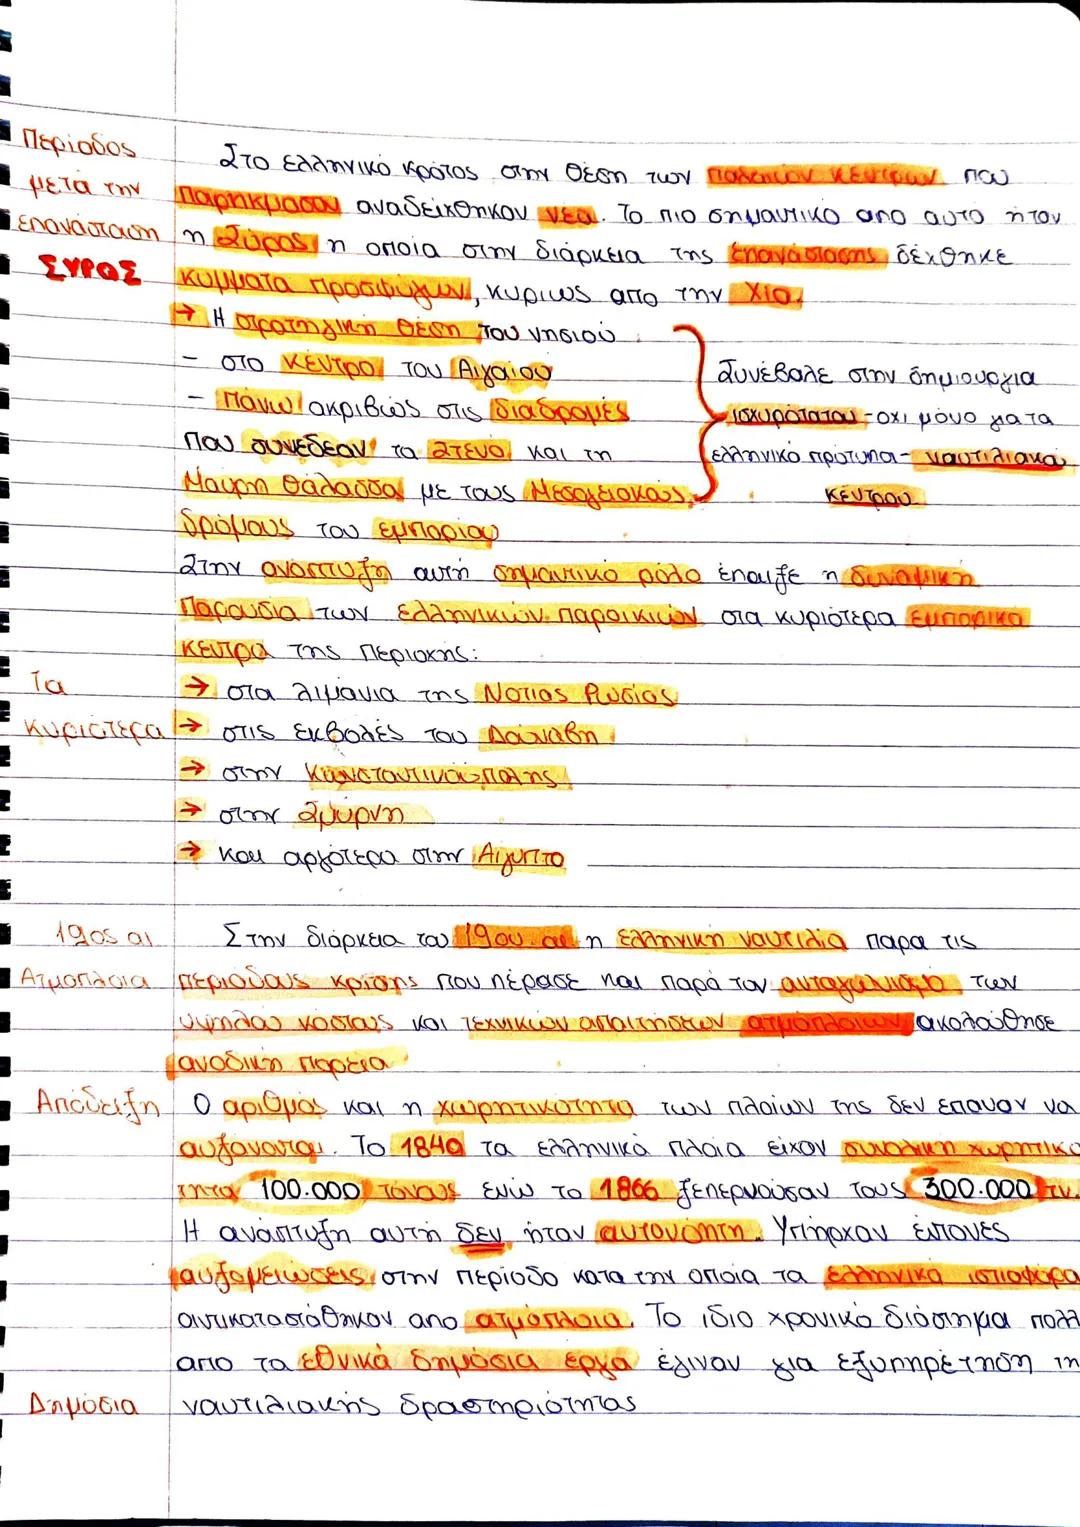 Περίοδος
μετά την
επανάσταση
ΣΥΡΟΣ
Στο ελληνικό κράτος στην θέση των παλαιών κέντρων που
παρήκμασαν αναδείχθηκαν νέα. Το πιο σημαντικό από αυτά ήταν
η Σύρος, η οποία στην διάρκεια της Επανάστασης δέχθηκε
κύμματα προσφύγων, κυρίως από την Χίο.
→ Η στρατηγική θέση του νησιού
- στο κέντρο του Αιγαίου
- πάνω ακριβώς στις διαδρομές
που συνέδεαν τα Στενά και τη
Μαύρη Θάλασσα με τους Μεσογειακούς
δρόμους του εμπορίου
Συνέβαλε στην δημιουργία
ισχυρότατου -οχι μόνο για τα
ελληνικά πρότυπα- ναυτιλιακού
κέντρου
Στην ανάπτυξη αυτή σημαντικό ρόλο έπαιξε η δυναμική
παρουσία των ελληνικών παροικιών στα κυριότερα εμπορικά
κέντρα της περιοχής:
Τα
κυριότερα
→ στα λιμάνια της Νότιας Ρωσίας
→ στις εκβολές του Δούναβη
→ στην Κωνσταντινούπολης
→ στην Σμύρνη
→ και αργότερα στην Αίγυπτο
19ος αι
Ατμόπλοια
Στην διάρκεια του 19ου αι η ελληνική ναυτιλία παρα τις
περιόδους κρίσης που πέρασε και παρά τον ανταγωνισμό των
υψηλού κόστους και τεχνικών απαιτήσεων ατμόπλοιων ακολούθησε
ανοδική πορεία
Απόδειξη
Ο αριθμός και η χωρητικότητα των πλοίων της δεν έπαυαν να
αυξάνονται. Το 1840 τα ελληνικά πλοία είχαν συνολική χωρητικό
τητα 100.000 τόνους ενώ το 1866 ξεπερνούσαν τους 300.000 τν.
Η ανάπτυξη αυτή δεν ήταν αυτονόητη. Υπήρχαν έντονες
αυξομειώσεις στην περίοδο κατα την οποία τα ελληνικά ιστιοφόρα
αντικαταστάθηκαν απο ατμόπλοια. Το ιδιο χρονικό διάστημα πολλ
απο τα εθνικά δημόσια έργα έγιναν για εξυπηρέτηση τη
Δημόσια
ναυτιλιακής δραστηριότητας